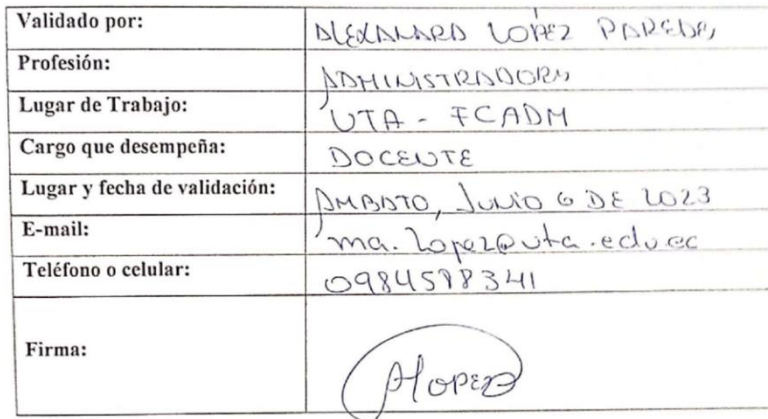 Validado por: ALEXANDRA LÓPEZ PAREDES
Profesión: ADMINISTRADORA
Lugar de Trabajo: UTA - FCADM
Cargo que desempeña: DOCENTE
Lugar y fecha de validación: AMBATO, JUNIO 6 DE 2023
E-mail: ma.lopez@uta.edu.ec
Teléfono o celular: 0984598341
Firma: ALOPEZ